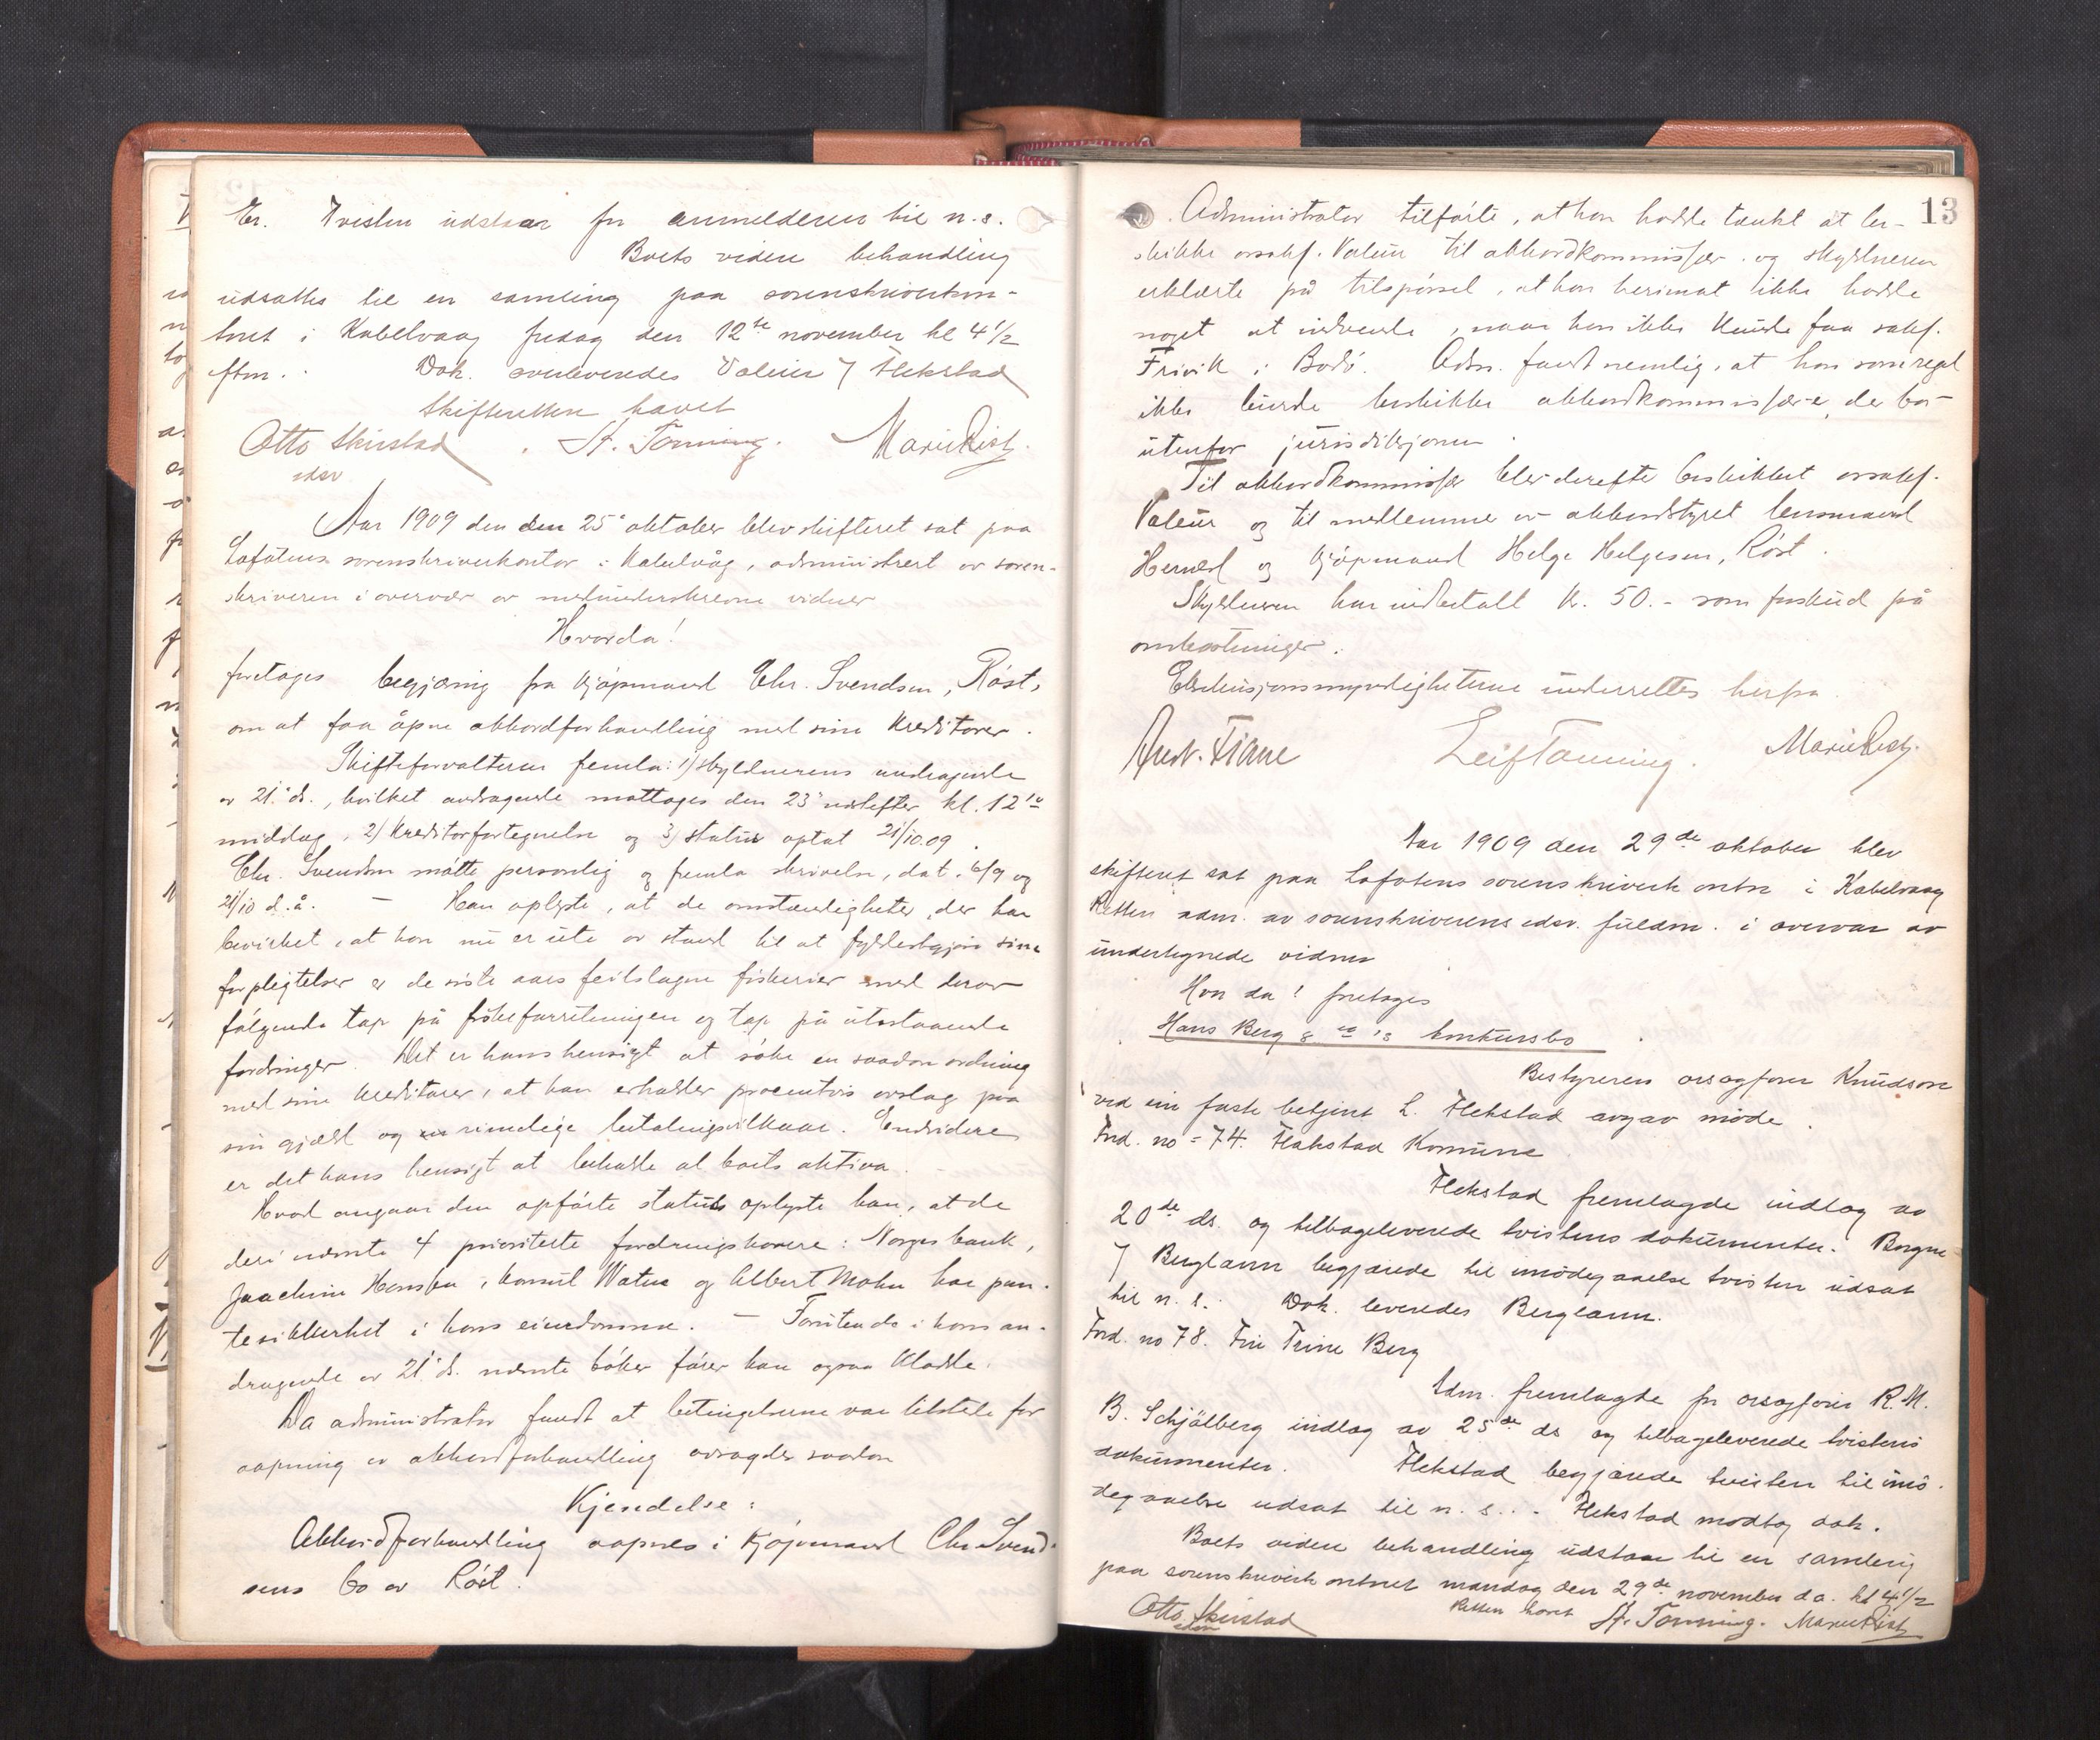 Er. Tvisten udstaar for anmelderen til n.s.
Boets videre behandling
udsattes til en samling paa sorenskriverkon-
toret i Kabelvaag fredag den 12te november kl 4 1/2
ftm. Dok. overleveredes Valeur / Flekstad
Skifteretten hævet
Otto Skirstad St. Tonning. Marie Rist.
edsv
Aar 1909 den den 25' oktober blev skifteret sat paa
Lofotens sorenskriverkontor i Kabelvåg, administrert av soren-
skriveren i overvær av medunderskrevne vidner
Hvorda!
foretages begjæring fra kjøpmand Chr. Svendsen, Røst,
om at faa åpne akkordforhandling med sine kreditorer.
Skifteforvalteren fremla: 1) skyldnerens andragende
av 21' ds., hvilket andragende mottages den 23' næstefter kl. 12
middag, 2) kreditorfortegnelse og 3) status optat 21/10.09.
Chr. Svendsen møtte personlig og fremla skrivelse, dat. 6/9 og
21/10 d.å. - Han oplyste, at de omstændigheter, der har
bevirket, at han nu er ute av stand til at fyldestgjøre sine
forpligtelser er de siste aars feilslagne fiskerier med derav
følgende tap på fiskeforretningen og tap på utestaaende
fordringer. Det er hans hensigt at søke en saadan ordning
med sine kreditorer, at han erholder procentvis avslag paa
sin gjæld og rimelige betalingsvilkaar. Endvidere
er det hans hensigt at beholde al boets aktiva.
Hvad angaar den opførte status oplyste han, at de
deri nævnte 4 prioriterte fordringshavere: Norges bank,
Joachim Hansen, konsul Watne og Albert Mohn har pan-
tesikkerhet i hans eiendomme. - Foruten de i hans an-
dragende av 21' ds. nævnte bøker fører han ogsaa kladde.
Da administrator fandt at betingelserne var tilstede for
aapning av akkordforhandling avsagdes saadan
Kjendelse:
Akkordforhandling aapnes i kjøpmand Chr. Svend-
sens bo av Røst.
13
Administrator tilførte, at han hadde tænkt at be-
skikke orsakf. Valeur til akkordkommissær og skyldneren
erklærte på tilspørsel, at han herimot ikke hadde
noget at indvende, naar han ikke kunde faa sakf.
Frivik i Bodø. Adm. fandt nemlig, at han som regel
ikke burde beskikke akkordkommissær-e, der bor
utenfor jurisdiksjonen.
Til akkordkommissær blev derefter beskikket orsakf.
Valeur og til medlemme av akkordstyret lensmand
Hernæs og kjøpmand Helge Helgesen, Røst.
Skyldneren har indbetalt kr. 50.- som forskud på
omkostninger.
Ekstensjonsmyndigheterne underrettes herfra.
Andr. Fiane Leif Tonning. Marie Rist.
Aar 1909 den 29de oktober blev
skifteret sat paa Lofotens sorenskriverkontor i Kabelvaag
Retten adm. av sorenskriverens edsv. fuldm. i overvær av
undertegnede vidner
Hvor da! foretages
Hans Berg & co's konkursbo
Bestyreren orsagfører Knudson
ved sin faste betjent L. Flekstad avgav møde.
Ford. no = 74. Flakstad Komune
Flekstad fremlagde indlæg av
20de ds. og tilbageleverede tvistens dokumenter. Borgne
/ Berglann begjærede til imødegaaelse tvisten udsat
til n.s. Dok. leveredes Berglann.
Ford. no 78. Fru Trine Berg
Adm. fremlagde for orsagfører R.M.
B. Schjølberg indlæg av 25de ds og tilbageleverede tvistens
dokumenter. Flekstad begjærede tvisten til imø-
degaaelse udsat til n.s.. - Flekstad modtog dok.
Boets videre behandling udstaar til en samling
paa sorenskriverkontoret mandag den 29de november d.a. kl 4 1/2
Retten hævet
Otto Skirstad St. Tonning. Marie Rist
edsv